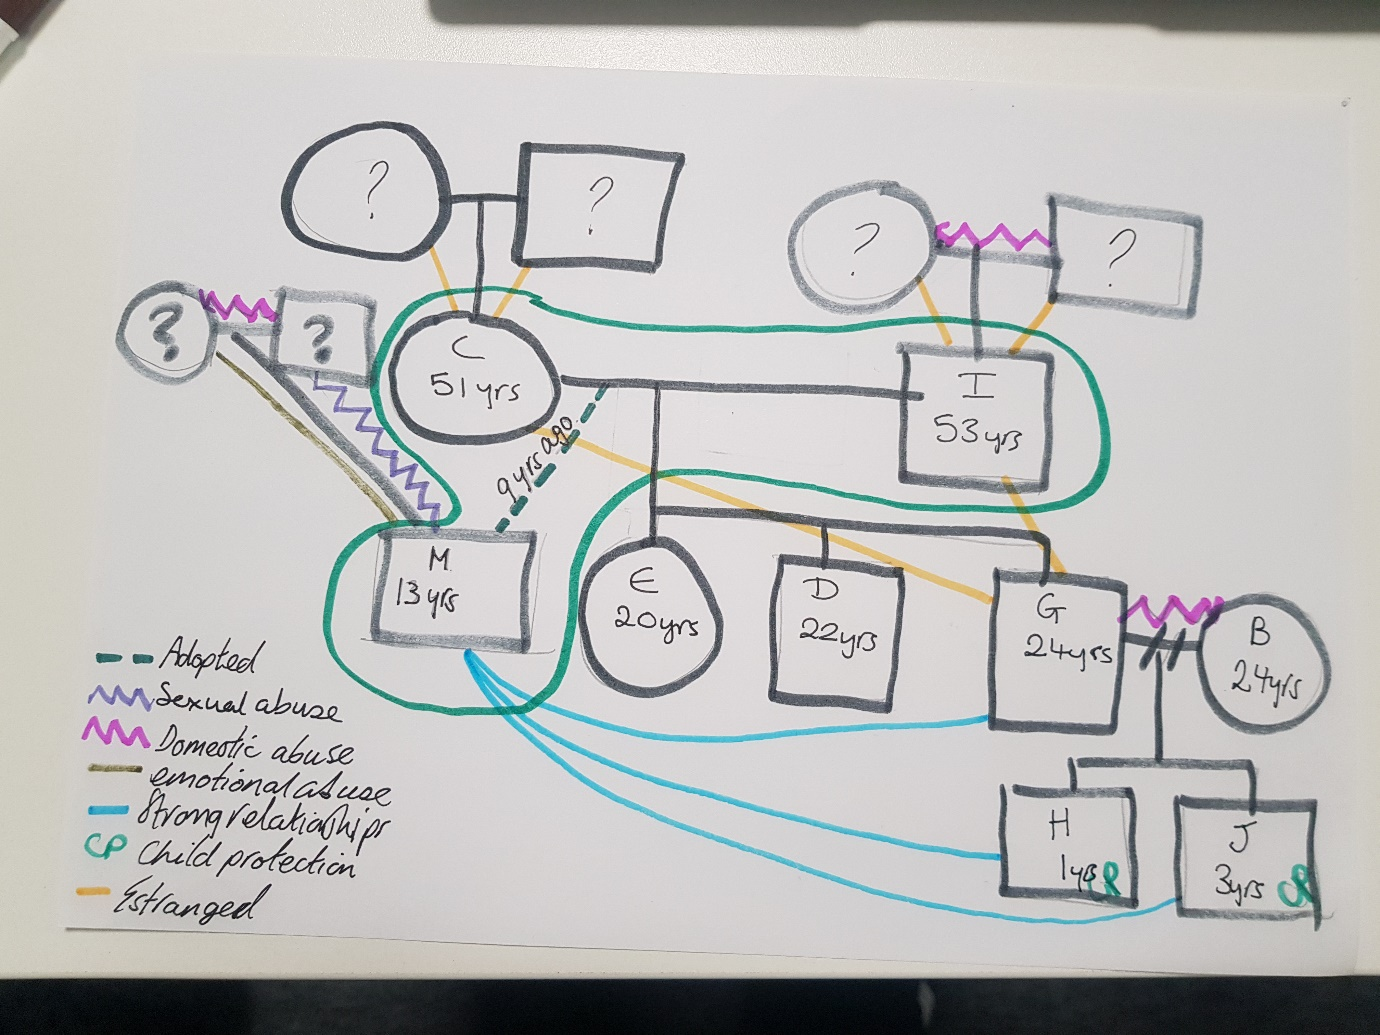 ?
?
?
?
?
?
C
51yrs
I
53yrs
9yrs ago
M
13yrs
E
20yrs
D
22yrs
G
24yrs
B
24yrs
H
1yrs
CP
J
3yrs
CP
Adopted
Sexual abuse
Domestic abuse
emotional abuse
Strong relationships
CP Child protection
Estranged